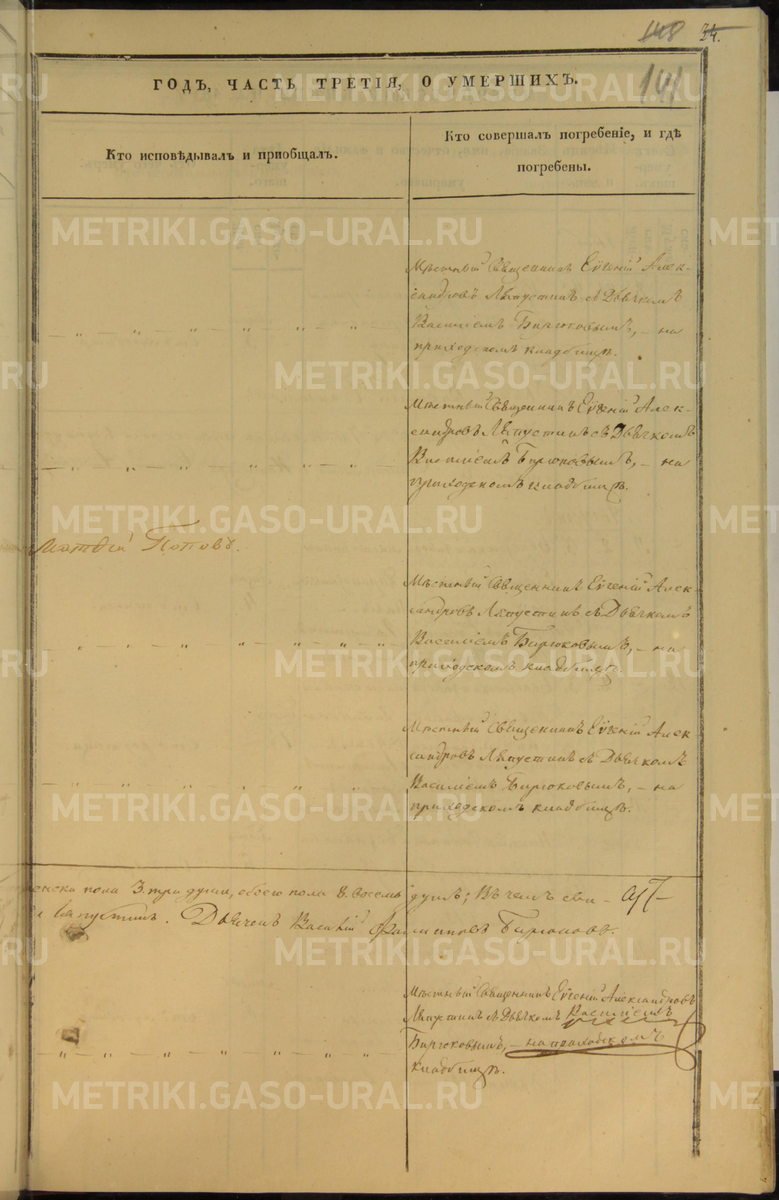 148 34.
141
ГОДЪ, ЧАСТЬ ТРЕТІЯ, О УМЕРШИХЪ.
Кто исповѣдывалъ и пріобщалъ.
Кто совершалъ погребеніе, и гдѣ
погребены.
Мѣстный Священникъ Евгеній Алек-
сандровъ Лапустинъ съ Дьячкомъ
Василіемъ Бирюковымъ, – на
приходскомъ кладбищѣ.
Мѣстный Священникъ Евгеній Алек-
сандровъ Лапустинъ съ Дьячкомъ
Василіемъ Бирюковымъ, – на
приходскомъ кладбищѣ.
Матвей Поповъ.
Мѣстный Священникъ Евгеній Алек-
сандровъ Лапустинъ съ Дьячкомъ
Василіемъ Бирюковымъ, – на
приходскомъ кладбищѣ.
Мѣстный Священникъ Евгеній Алек
сандровъ Лапустинъ съ Дьячкомъ
Василіемъ Бирюковымъ, – на
приходскомъ кладбищѣ.
женска пола 3. три души, обоего пола 8. восемь душъ; Въ чемъ сви-
Лапустинъ. Дьячекъ Василій Бирюковъ.
Мѣстный Священникъ Евгеній Александровъ
Лапустинъ съ Дьячкомъ Василіемъ
Бирюковымъ, – на приходскомъ
кладбищѣ.
METRIKI.GASO-URAL.RU